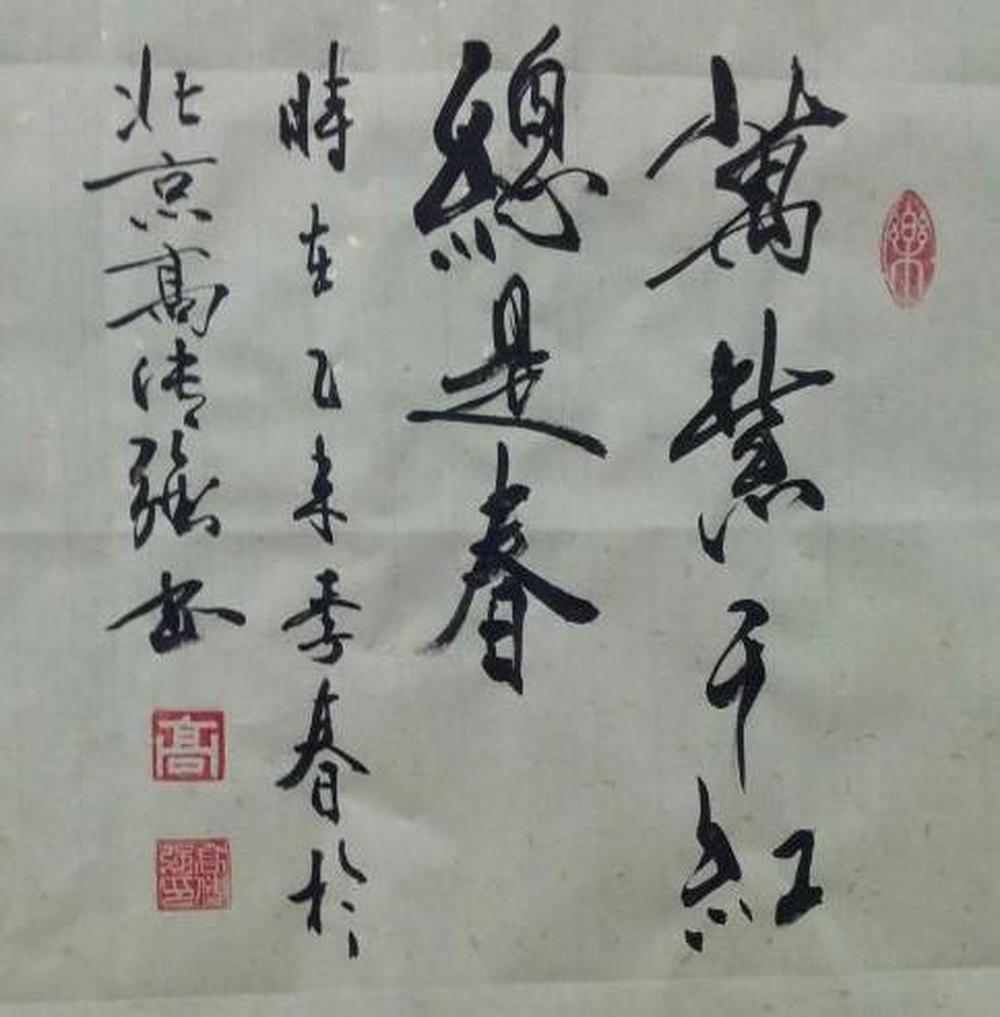 樂
萬紫千紅
總是春
時在乙未季春於
北京高傳强書
高